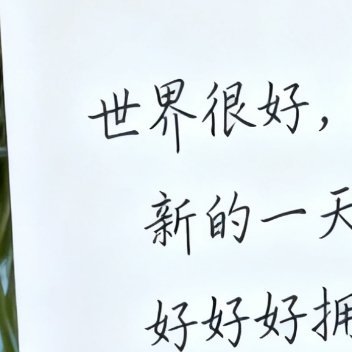 世界很好，
新的一天
好好好拥